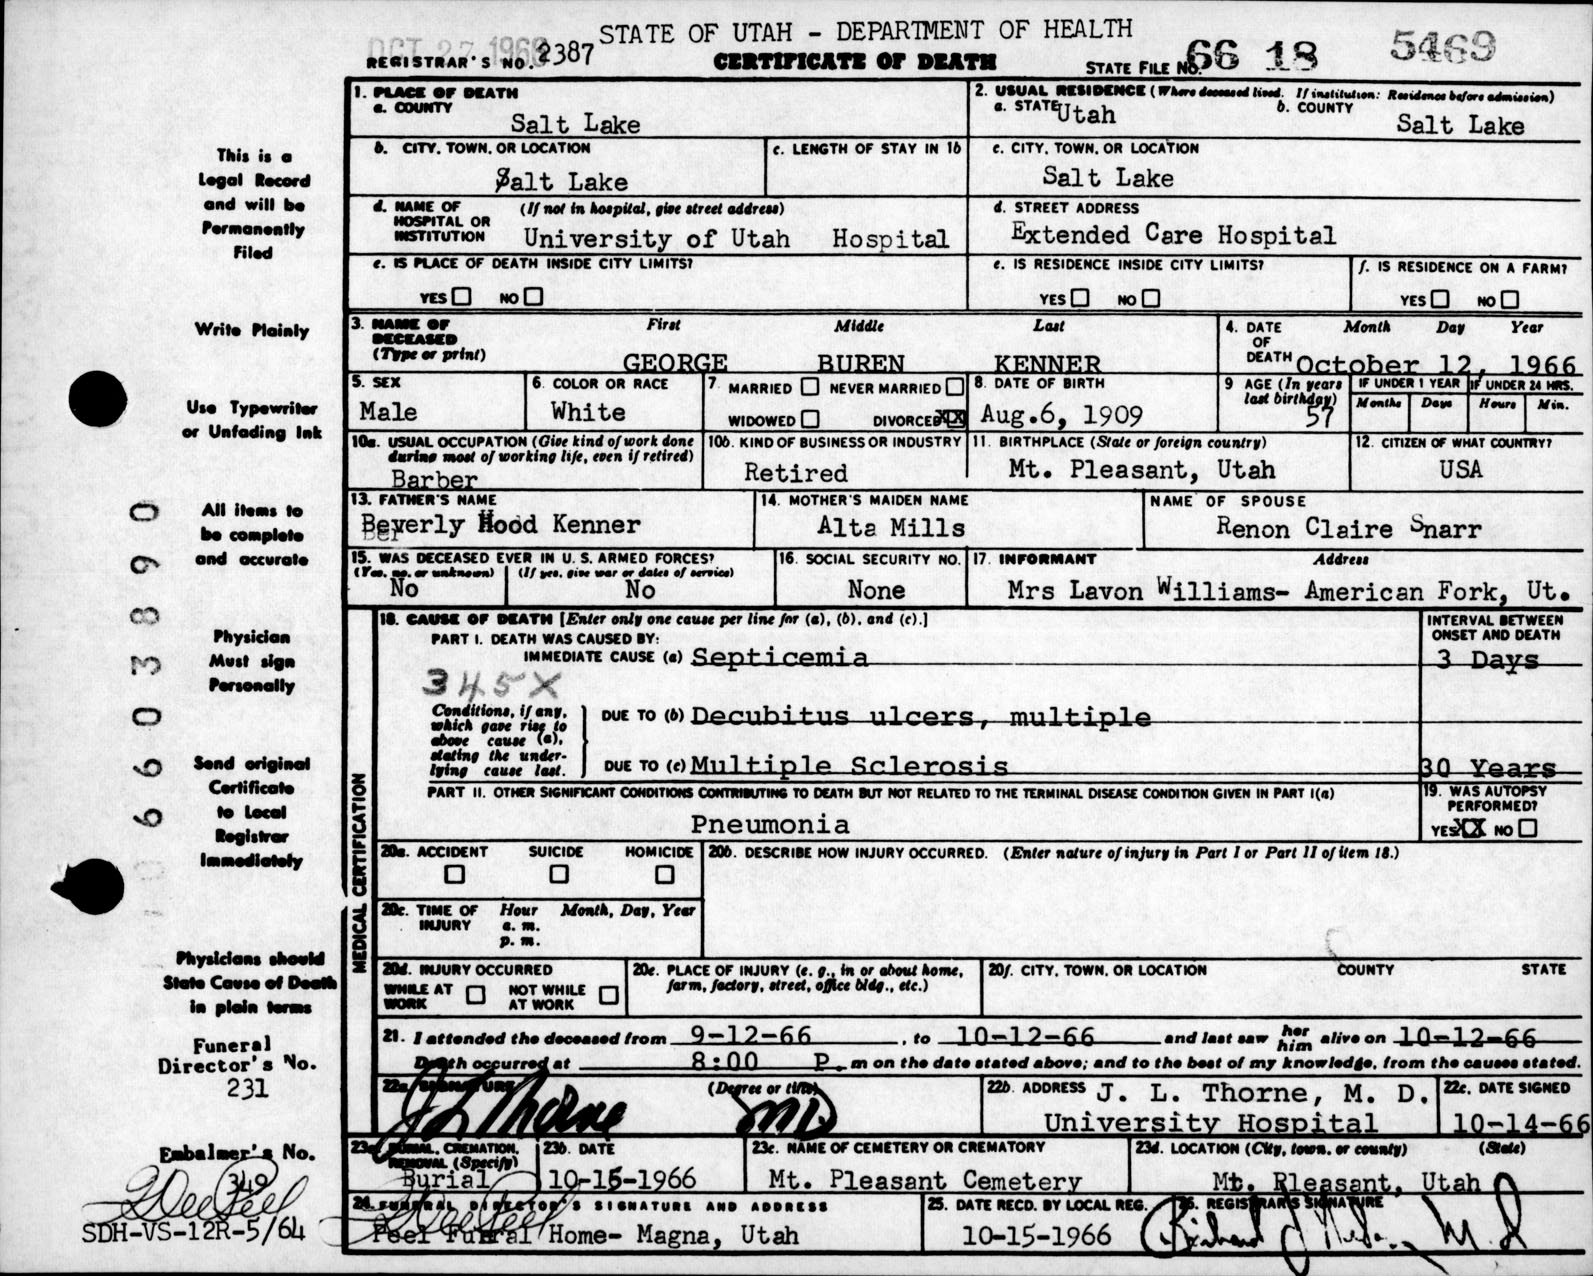 STATE OF UTAH - DEPARTMENT OF HEALTH
OCT 27 1966
REGISTRAR'S NO. 2387
CERTIFICATE OF DEATH
STATE FILE NO. 66 18 5469
This is a
Legal Record
and will be
Permanently
Filed
Write Plainly
Use Typewriter
or Unfading Ink
All items to
be complete
and accurate
Physician
Must sign
Personally
Send original
Certificate
to Local
Registrar
Immediately
Physicians should
State Cause of Death
in plain terms
Funeral
Director's No.
231
Embalmer's No.
349
SDH-VS-12R-5/64
6603890
1. PLACE OF DEATH
a. COUNTY
Salt Lake
2. USUAL RESIDENCE (Where deceased lived. If institution: Residence before admission)
a. STATE Utah
b. COUNTY
Salt Lake
b. CITY, TOWN, OR LOCATION
Salt Lake
c. LENGTH OF STAY IN 1b
c. CITY, TOWN, OR LOCATION
Salt Lake
d. NAME OF HOSPITAL OR INSTITUTION
(If not in hospital, give street address)
University of Utah Hospital
d. STREET ADDRESS
Extended Care Hospital
e. IS PLACE OF DEATH INSIDE CITY LIMITS?
YES NO
e. IS RESIDENCE INSIDE CITY LIMITS?
YES NO
f. IS RESIDENCE ON A FARM?
YES NO
3. NAME OF DECEASED
(Type or print)
First Middle Last
GEORGE BUREN KENNER
4. DATE OF DEATH
Month Day Year
October 12, 1966
5. SEX
Male
6. COLOR OR RACE
White
7. MARRIED NEVER MARRIED
WIDOWED DIVORCED XX
8. DATE OF BIRTH
Aug.6, 1909
9 AGE (In years last birthday)
57
IF UNDER 1 YEAR
Months Days
IF UNDER 24 HRS.
Hours Min.
10a. USUAL OCCUPATION (Give kind of work done during most of working life, even if retired)
Barber
10b. KIND OF BUSINESS OR INDUSTRY
Retired
11. BIRTHPLACE (State or foreign country)
Mt. Pleasant, Utah
12. CITIZEN OF WHAT COUNTRY?
USA
13. FATHER'S NAME
Beverly Hood Kenner
14. MOTHER'S MAIDEN NAME
Alta Mills
NAME OF SPOUSE
Renon Claire Snarr
15. WAS DECEASED EVER IN U. S. ARMED FORCES?
(Yes, no, or unknown) (If yes, give war or dates of service)
No No
16. SOCIAL SECURITY NO.
None
17. INFORMANT Address
Mrs Lavon Williams- American Fork, Ut.
MEDICAL CERTIFICATION
18. CAUSE OF DEATH [Enter only one cause per line for (a), (b), and (c).]
PART I. DEATH WAS CAUSED BY:
INTERVAL BETWEEN ONSET AND DEATH
IMMEDIATE CAUSE (a) Septicemia
3 Days
345X
Conditions, if any, which gave rise to above cause (a), stating the underlying cause last.
DUE TO (b) Decubitus ulcers, multiple
DUE TO (c) Multiple Sclerosis
30 Years
PART II. OTHER SIGNIFICANT CONDITIONS CONTRIBUTING TO DEATH BUT NOT RELATED TO THE TERMINAL DISEASE CONDITION GIVEN IN PART I(a)
Pneumonia
19. WAS AUTOPSY PERFORMED?
YES XX NO
20a. ACCIDENT SUICIDE HOMICIDE
20b. DESCRIBE HOW INJURY OCCURRED. (Enter nature of injury in Part I or Part II of item 18.)
20c. TIME OF INJURY
Hour Month, Day, Year
a. m.
p. m.
20d. INJURY OCCURRED
WHILE AT WORK NOT WHILE AT WORK
20e. PLACE OF INJURY (e. g., in or about home, farm, factory, street, office bldg., etc.)
20f. CITY, TOWN, OR LOCATION COUNTY STATE
21. I attended the deceased from 9-12-66, to 10-12-66 and last saw her him alive on 10-12-66
Death occurred at 8:00 P. m on the date stated above; and to the best of my knowledge, from the causes stated.
22a. SIGNATURE (Degree or title)
J L Thorne MD
22b. ADDRESS J. L. Thorne, M. D.
University Hospital
22c. DATE SIGNED
10-14-66
23a. BURIAL, CREMATION, REMOVAL (Specify)
Burial
23b. DATE
10-15-1966
23c. NAME OF CEMETERY OR CREMATORY
Mt. Pleasant Cemetery
23d. LOCATION (City, town, or county) (State)
Mt. Pleasant, Utah
24. FUNERAL DIRECTOR'S SIGNATURE AND ADDRESS
Peel Funral Home- Magna, Utah
25. DATE RECD. BY LOCAL REG.
10-15-1966
26. REGISTRAR'S SIGNATURE